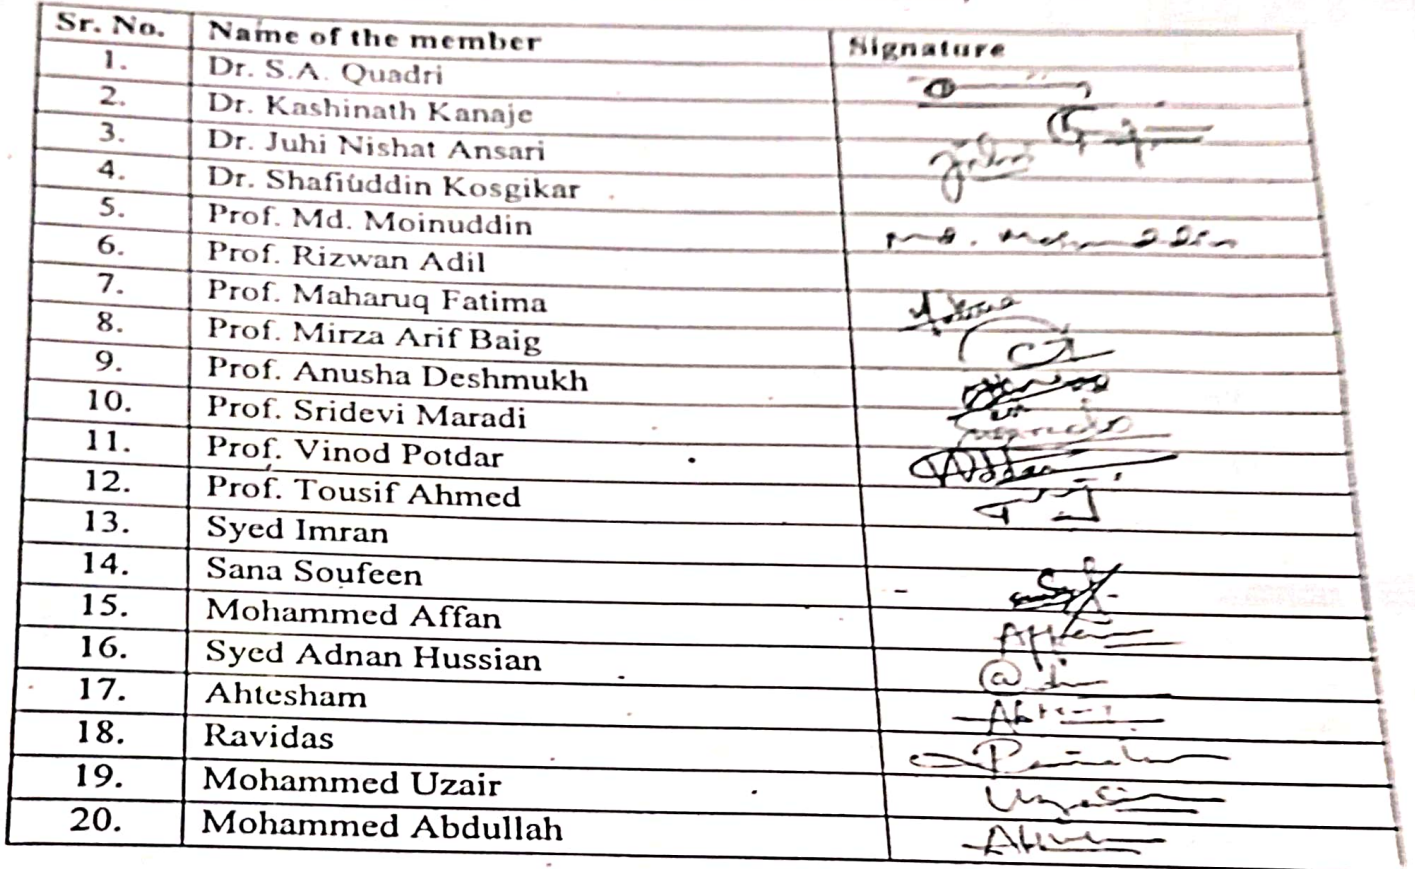 Sr. No. Name of the member Signature
1. Dr. S.A. Quadri
2. Dr. Kashinath Kanaje
3. Dr. Juhi Nishat Ansari
4. Dr. Shafiuddin Kosgikar
5. Prof. Md. Moinuddin
6. Prof. Rizwan Adil
7. Prof. Maharuq Fatima
8. Prof. Mirza Arif Baig
9. Prof. Anusha Deshmukh
10. Prof. Sridevi Maradi
11. Prof. Vinod Potdar
12. Prof. Tousif Ahmed
13. Syed Imran
14. Sana Soufeen
15. Mohammed Affan
16. Syed Adnan Hussian
17. Ahtesham
18. Ravidas
19. Mohammed Uzair
20. Mohammed Abdullah